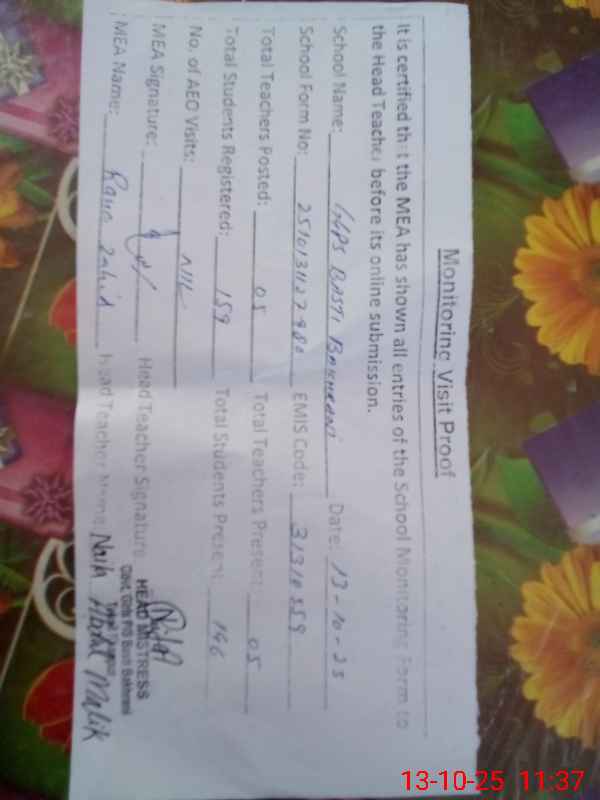 Monitoring Visit Proof
It is certified that the MEA has shown all entries of the School Monitoring Form to
the Head Teacher before its online submission.
School Name: GGPS BASTI BAKHRANI Date: 13-10-25
School Form No: EMIS Code: 31310559
Total Teachers Posted: 05 Total Teachers Present: 05
Total Students Registered: 159 Total Students Present: 146
No. of AEO Visits: NIL
MEA Signature: Head Teacher Signature
HEAD MISTRESS
Govt. Girls P/S Basti Bakhrani
MEA Name: Rana Zahid Head Teacher Name Malik
13-10-25 11:37